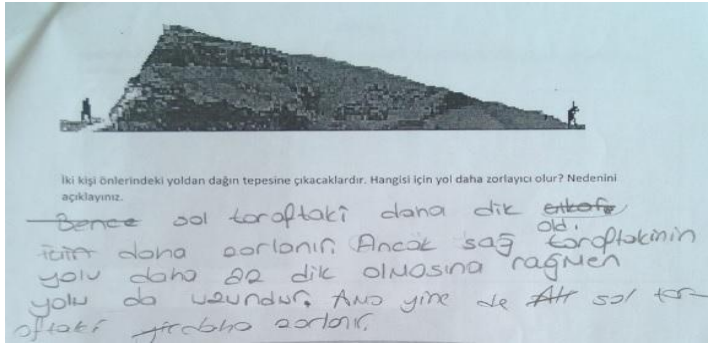 İki kişi önlerindeki yoldan dağın tepesine çıkacaklardır. Hangisi için yol daha zorlayıcı olur? Nedenini
açıklayınız.
Bence sol taraftaki daha dik
old.
için daha zorlanır. Ancak sağ taraftakinin
yolu daha az dik olmasına rağmen
yolu da uzundur. Ama yine de sol tar-
aftaki daha zorlanır.